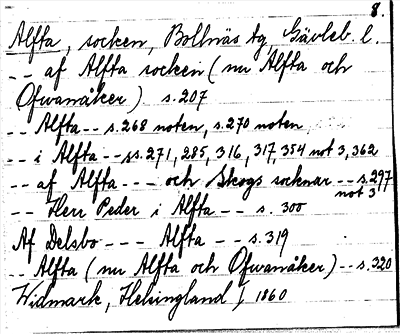 8.
Alfta, socken, Bollnäs tg, Gävleb. l.
-- af Alfta socken (nu Alfta och
Ofvanåker) s.207
-- Alfta -- s.268 noten, s.270 noten
-- i Alfta -- ss.271, 285, 316, 317, 354 not 3, 362
-- af Alfta --- och Skogs socknar -- s.297
not 3
-- Herr Peder i Alfta -- s. 300
Af Delsbo --- Alfta -- s.319
-- Alfta (nu Alfta och Ofvanåker) -- s.320
Widmark, Helsingland I, 1860